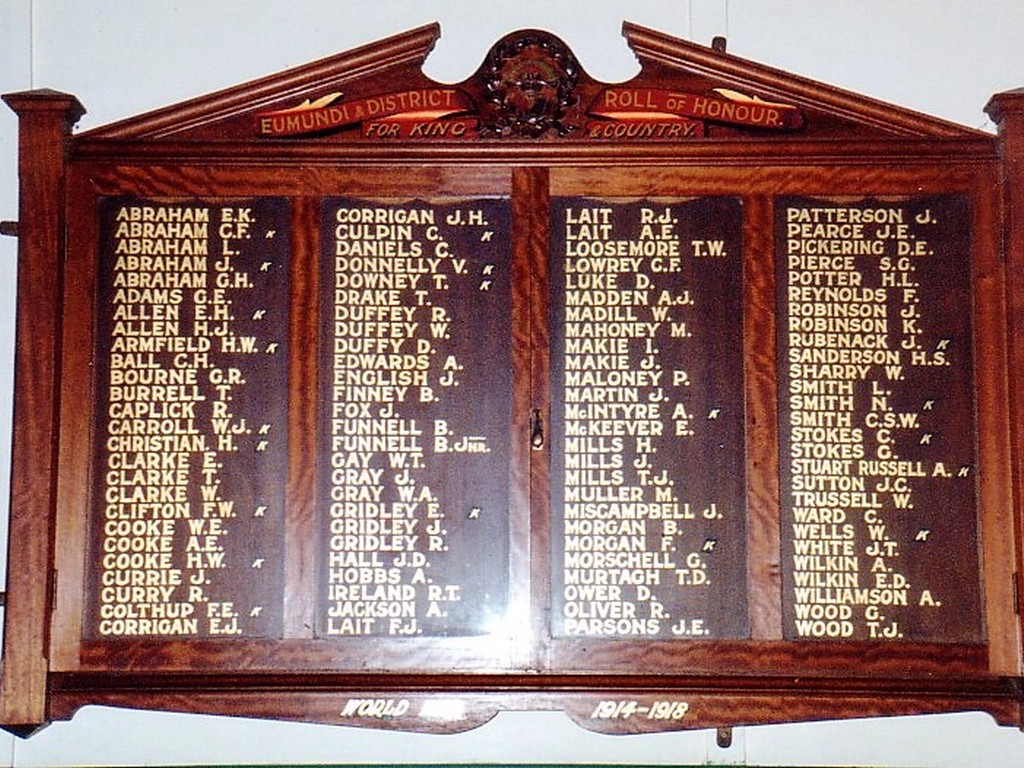 EUMUNDI & DISTRICT ROLL OF HONOUR.
FOR KING & COUNTRY.
ABRAHAM E.K.
ABRAHAM C.F. K
ABRAHAM L.
ABRAHAM J. K
ABRAHAM G.H.
ADAMS G.E.
ALLEN E.H. K
ALLEN H.J.
ARMFIELD H.W. K
BALL C.H.
BOURNE G.R.
BURRELL T.
CAPLICK R.
CARROLL W.J. K
CHRISTIAN. H. K
CLARKE E.
CLARKE T.
CLARKE W.
CLIFTON F.W. K
COOKE W.E.
COOKE A.E.
COOKE H.W. K
CURRIE J.
CURRY R.
COLTHUP F.E. K
CORRIGAN E.J.
CORRIGAN J.H.
CULPIN C. K
DANIELS C.
DONNELLY V. K
DOWNEY T. K
DRAKE T.
DUFFEY R.
DUFFEY W.
DUFFY D.
EDWARDS A.
ENGLISH J.
FINNEY B.
FOX J.
FUNNELL B.
FUNNELL B. JNR.
GAY W.T.
GRAY J.
GRAY W.A.
GRIDLEY E. K
GRIDLEY J.
GRIDLEY R.
HALL J.D.
HOBBS A.
IRELAND R.T.
JACKSON A.
LAIT F.J.
LAIT R.J.
LAIT A.E.
LOOSEMORE T.W.
LOWREY C.F.
LUKE D.
MADDEN A.J.
MADILL W.
MAHONEY M.
MAKIE I.
MAKIE J.
MALONEY P.
MARTIN J.
McINTYRE A. K
McKEEVER E.
MILLS H.
MILLS J.
MILLS T.J.
MULLER M.
MISCAMPBELL J.
MORGAN B.
MORGAN F. K
MORSCHELL G.
MURTAGH T.D.
OWER D.
OLIVER R.
PARSONS J.E.
PATTERSON J.
PEARCE J.E.
PICKERING D.E.
PIERCE S.G.
POTTER H.L.
REYNOLDS F.
ROBINSON J.
ROBINSON K.
RUBENACK J. K
SANDERSON H.S.
SHARRY W.
SMITH L.
SMITH N. K
SMITH C.S.W.
STOKES C. K
STOKES G.
STUART RUSSELL A. K
SUTTON J.C.
TRUSSELL W.
WARD C.
WELLS W. K
WHITE J.T.
WILKIN A.
WILKIN E.D.
WILLIAMSON A.
WOOD G.
WOOD T.J.
WORLD 1914-1918